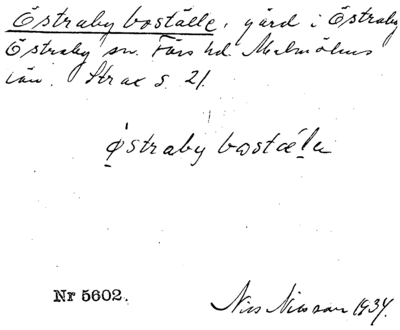 Östraby boställe, gård i Östraby
Östraby sn. Färs hd. Malmöhus
län. Strax s. 21.
östraby bostæ̀la
Nr 5602.
Nils Nilsson 1934.